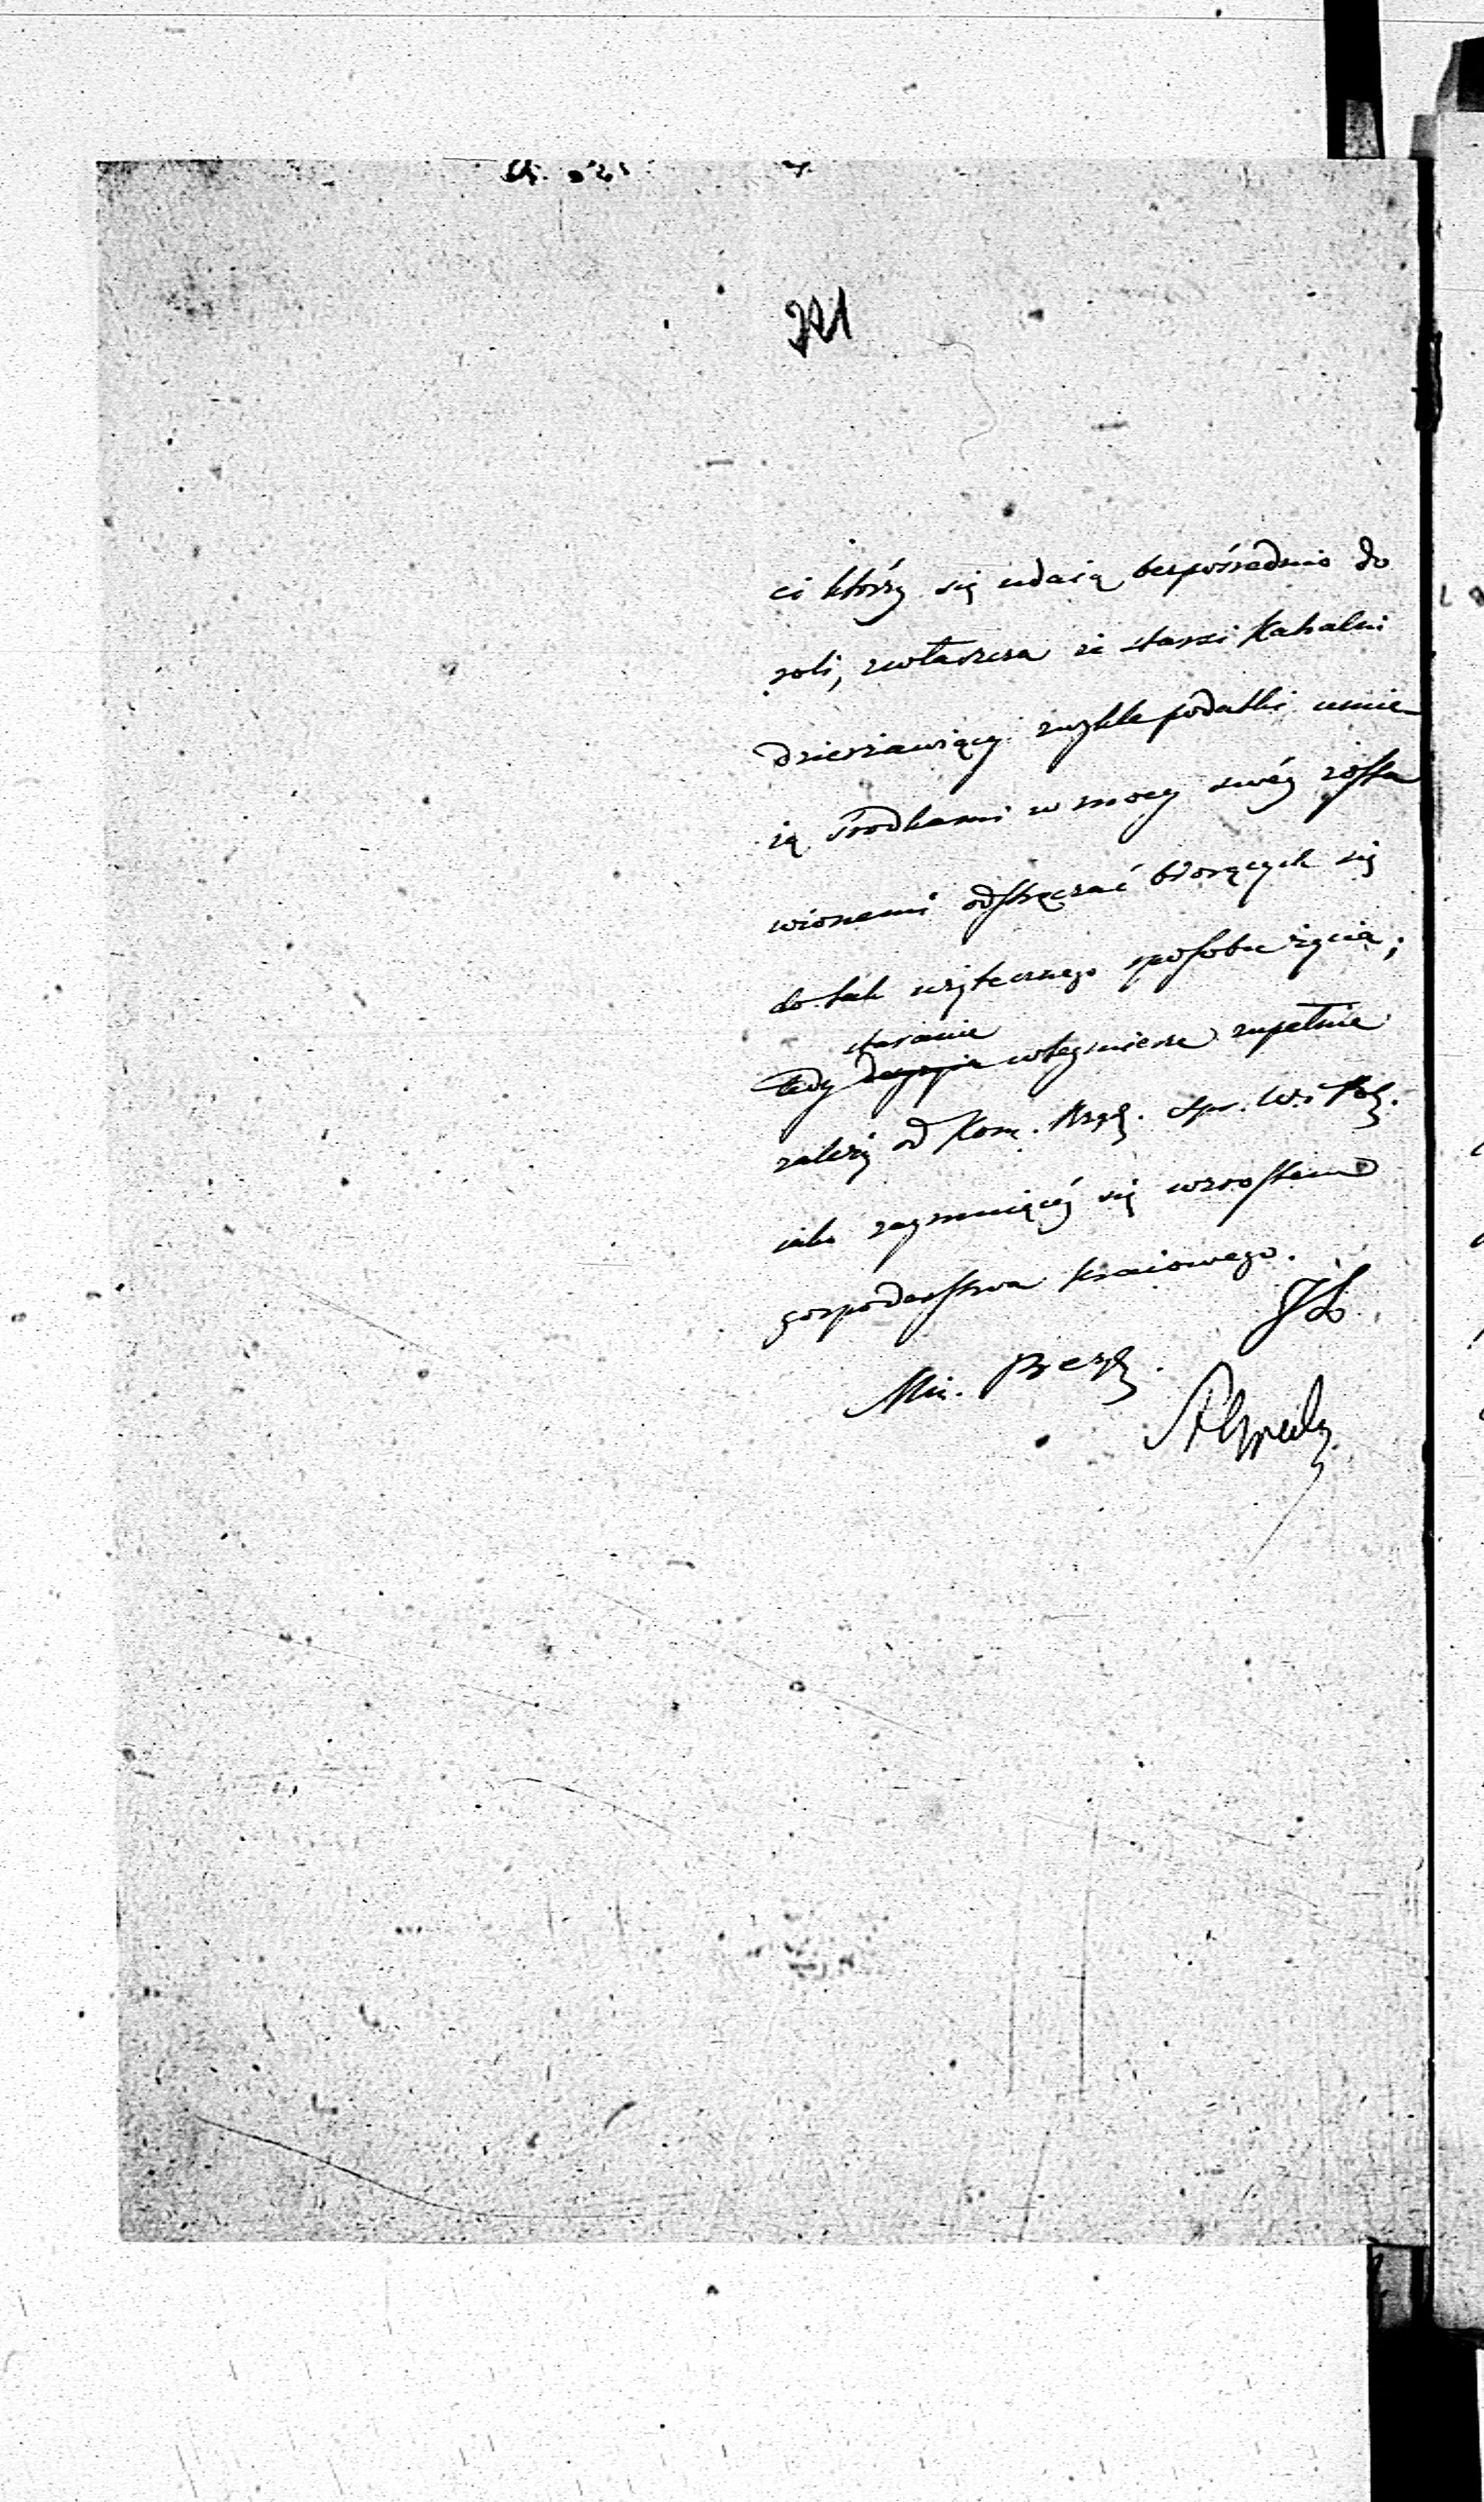 ci którzy się udaią bezpośrednio do
roli, zwłaszcza że starsi Kahalni
dzierżawiący zwykle podatki umie-
ią środkami w mocy swéy zosta
wionemi odstręczać biorących się
do tak użytecznego sposobu życia;
staranie
tedy decyzja w tey mierze zupełnie
należy od Kom. Rząd. Spr. W. i Pol.
iako zaymuiącéy się wzrostem
gospodarstwa kraiowego.
Min. Prezyd.